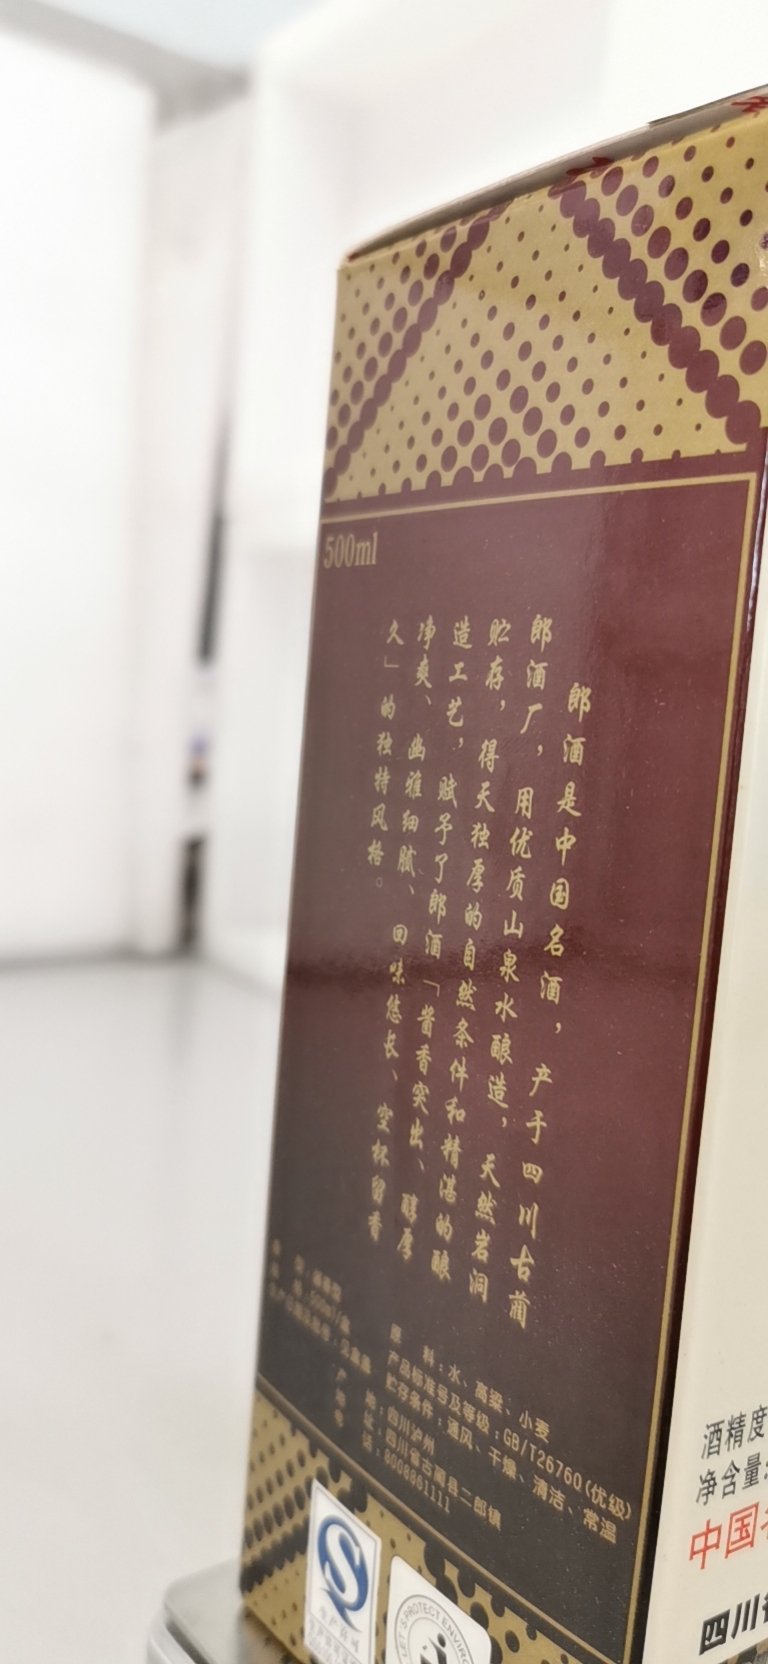 500ml
郎酒是中国名酒，产于四川古蔺
郎酒厂，用优质山泉水酿造，天然岩洞
贮存，得天独厚的自然条件和精湛的酿
造工艺，赋予了郎酒「酱香突出、醇厚
净爽、幽雅细腻、回味悠长、空杯留香
久」的独特风格。
原 料：水、高粱、小麦
产品标准号及等级：GB/T26760(优级)
贮存条件：通风、干燥、清洁、常温
产 地：四川泸州
地 址：四川省古蔺县二郎镇
电 话：8008801111
生产许可
酒精度
净含量:
中国
四川省